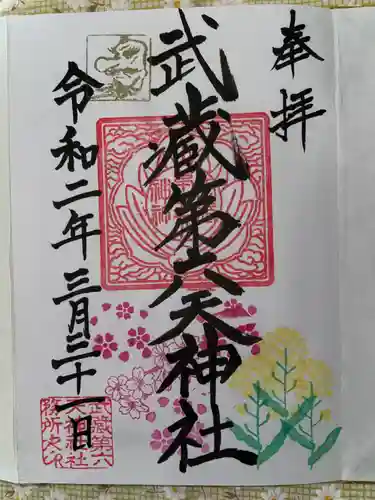 奉拝
武蔵第六天神社
令和二年三月三十一日
武蔵第六
天神社社
務所之印